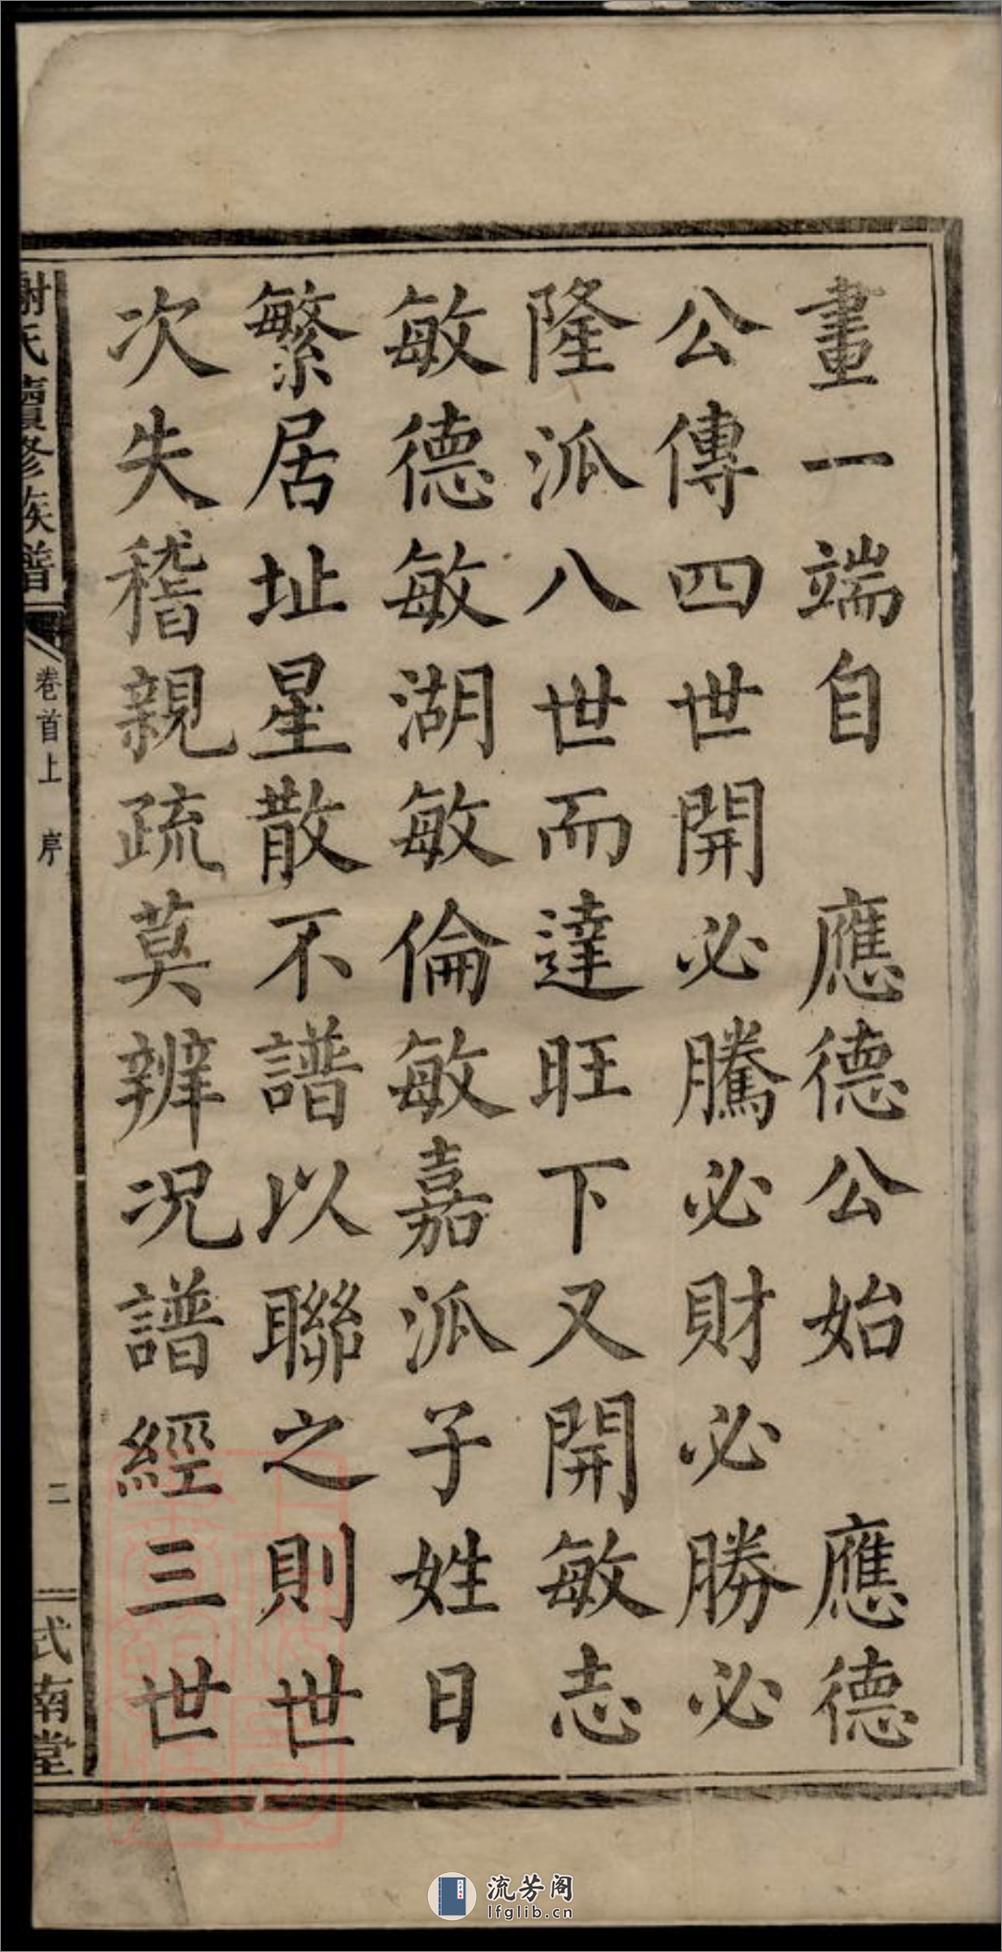 畫一端自　應德公始　應德
公傳四世開必騰必財必勝必
隆派八世而達旺下又開敏志
敏德敏湖敏倫敏嘉派子姓日
繁居址星散不譜以聯之則世
次失稽親疏莫辨况譜經三世
謝氏續修族譜
卷首上　序
二
式南堂
流芳阁
lfglib.cn